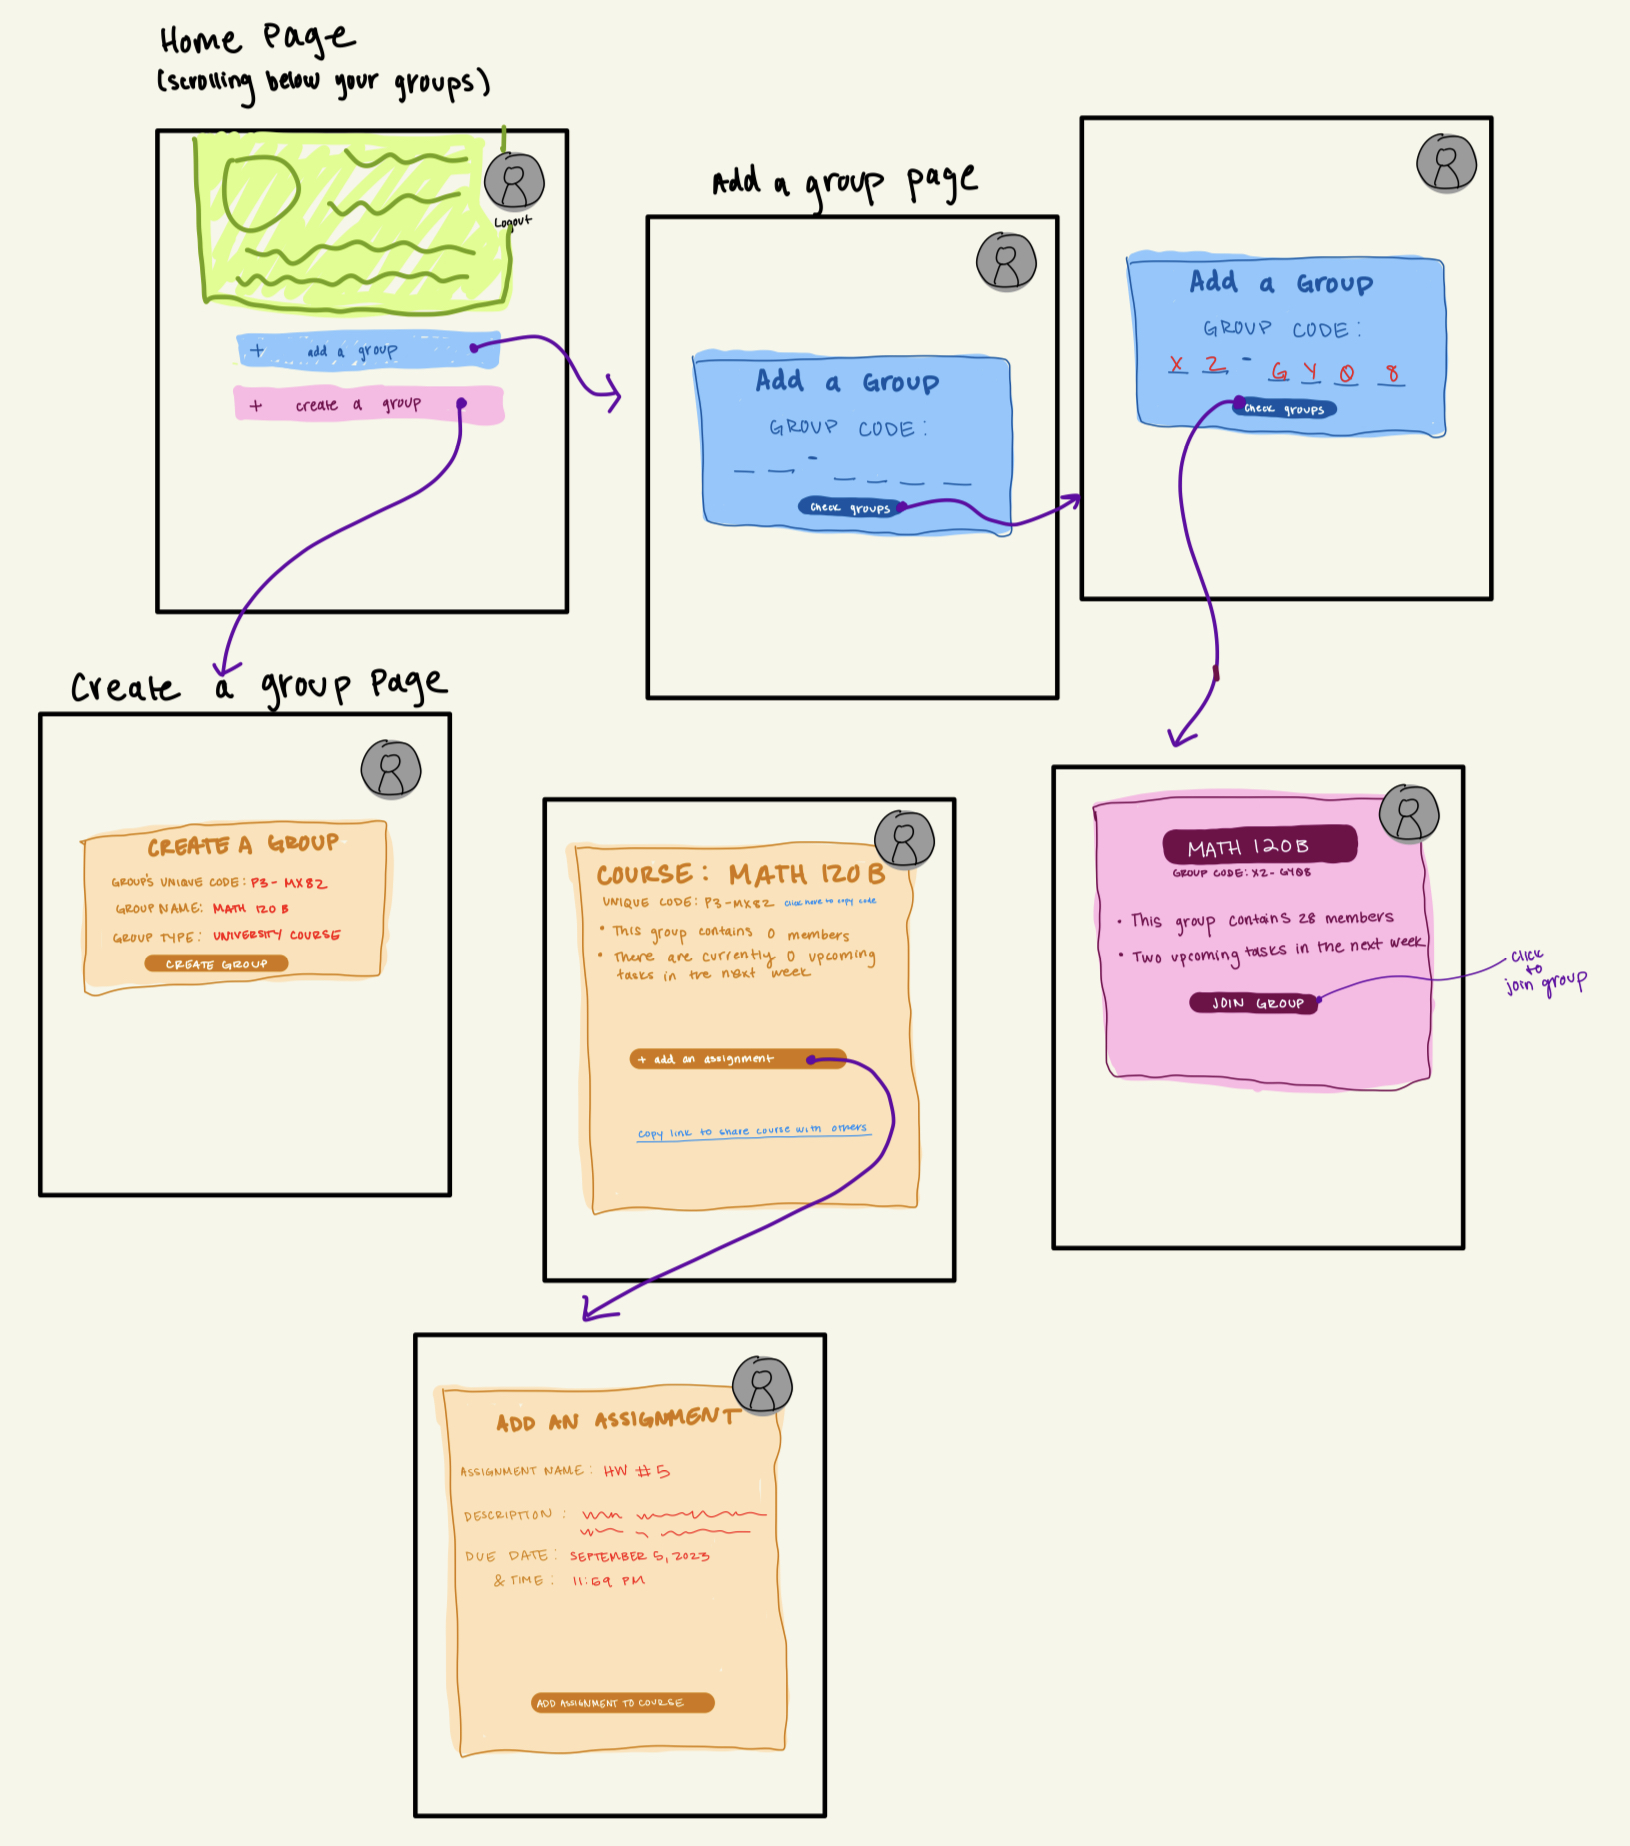 Home Page
(scrolling below your groups)
Logout
+ add a group
+ create a group
Add a group page
Add a Group
GROUP CODE:
_ _ - _ _ _ _
check groups
Add a Group
GROUP CODE:
X 2 - G Y 0 8
check groups
Create a group Page
CREATE A GROUP
GROUP'S UNIQUE CODE: P3-MX82
GROUP NAME: MATH 120 B
GROUP TYPE: UNIVERSITY COURSE
CREATE GROUP
COURSE: MATH 120 B
UNIQUE CODE: P3-MX82 click here to copy code
• This group contains 0 members
• There are currently 0 upcoming
tasks in the next week
+ add an assignment
copy link to share course with others
MATH 120B
GROUP CODE: X2-GY08
• This group contains 28 members
• Two upcoming tasks in the next week
JOIN GROUP
click
to
join group
ADD AN ASSIGNMENT
ASSIGNMENT NAME: HW #5
DESCRIPTION:
DUE DATE: SEPTEMBER 5, 2023
& TIME: 11:59 PM
ADD ASSIGNMENT TO COURSE